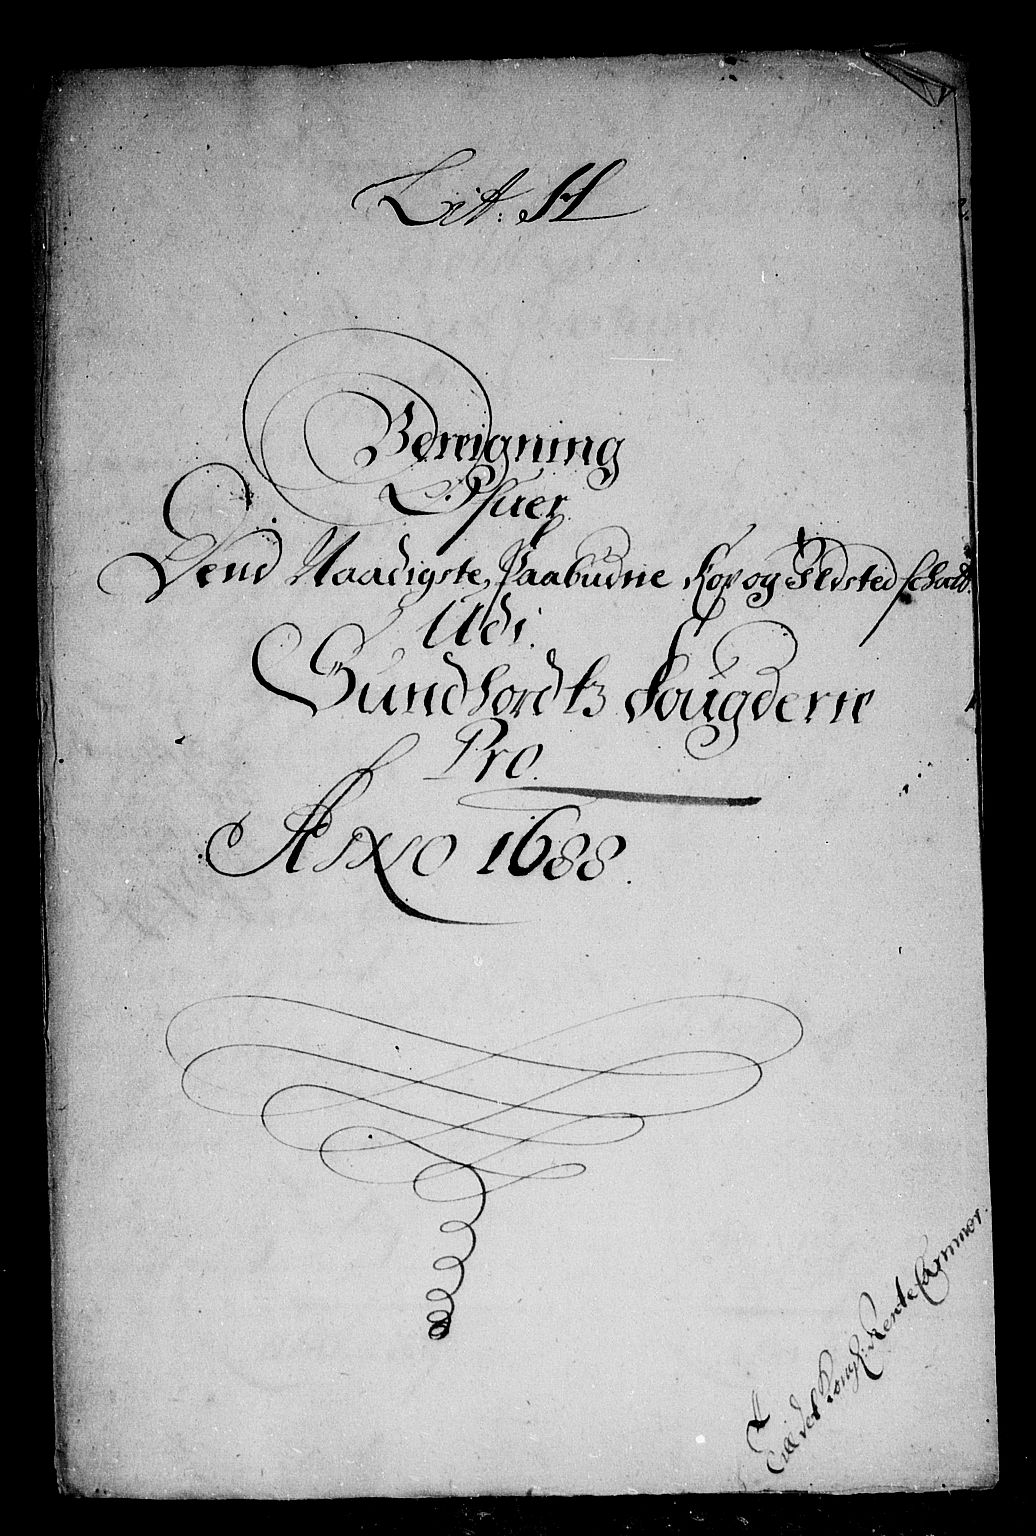 Lit: H
Bereigning
Ofuer
Dend Naadigste Paabudne Kop og Ildsted schatt.
Udi
Sundhordtz Fougderie
Pro
Anno 1688.
Till det Kongl: Rente Cammer.